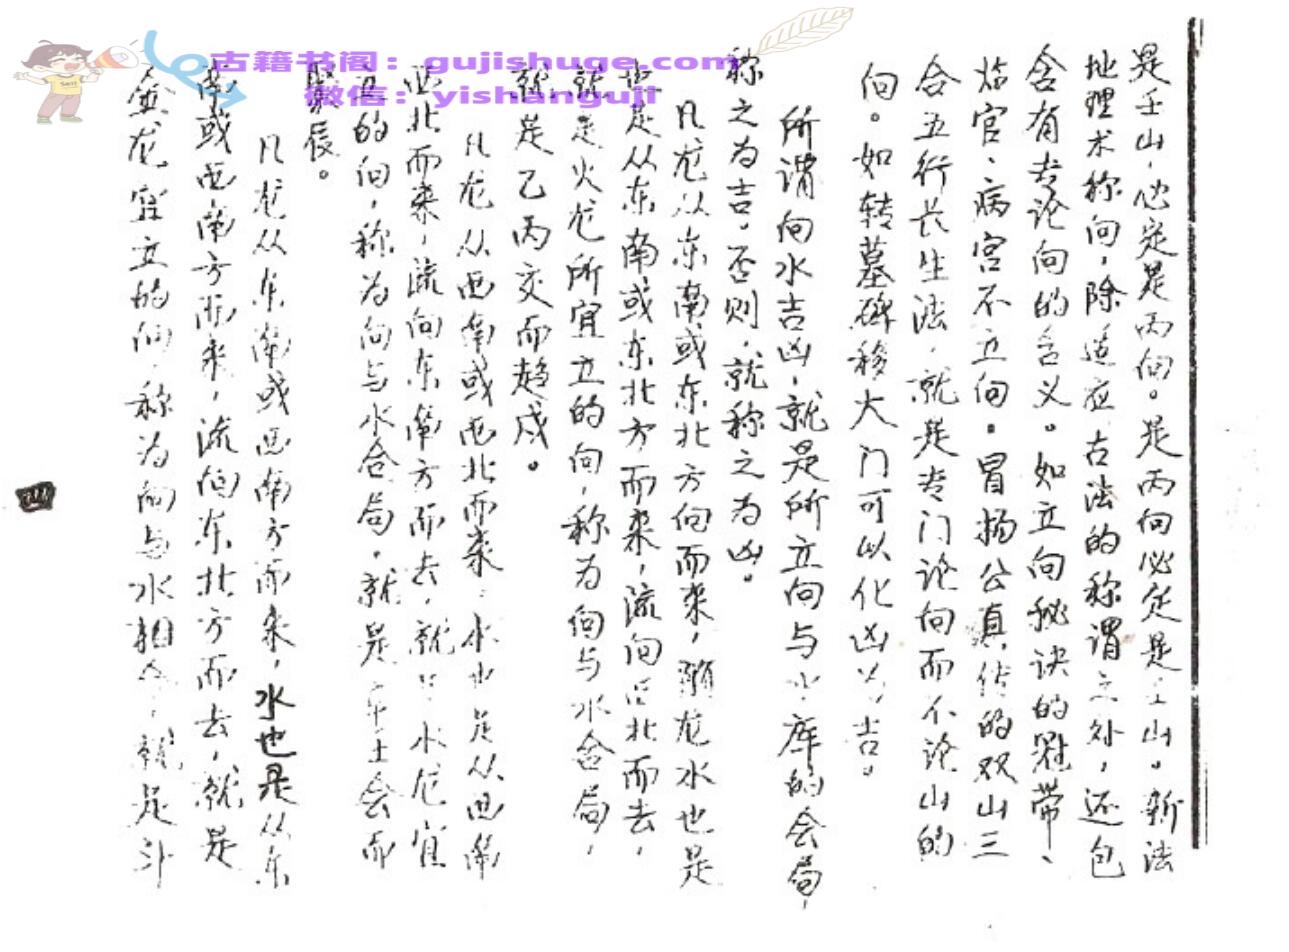 古籍书阁：gujishuge.com
微信：yishanguji
是壬山，必定是丙向。是丙向必定是壬山。新法
地理术称向，除适应古法的称谓之外，还包
含有专论向的含义。如立向秘诀的冠带、
临官、病宫不立向。冒扬公真传的双山三
合五行长生法，就是专门论向而不论山的
向。如转墓碑移大门可以化凶为吉。
所谓向水吉凶，就是所立向与水库的会局，
称之为吉，否则，就称之为凶。
凡龙从东南或东北方向而来，随龙水也是
也是从东南或东北方而来，流向西北而去，
就是火龙所宜立的向，称为向与水合局，
就是乙丙交而趋戍。
凡龙从西南或西北而来，水也是从西南
西北而来，流向东南方而去，就是水龙宜
立的向，称为向与水合局，就是辛壬会而
聚辰。
凡龙从东南或西南方而来，水也是从东
南或西南方而来，流向东北方而去，就是
金龙宜立的向，称为向与水相合，就是斗
四